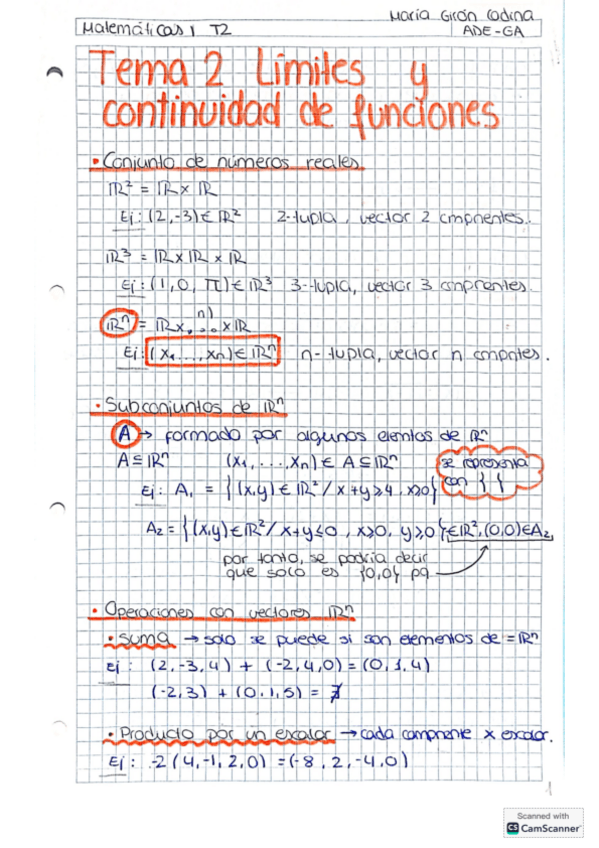 María Girón Codina
Matemáticas 1 T2
ADE-GA
Tema 2 Límites y
continuidad de funciones
• Conjunto de números reales
ℝ² = ℝ x ℝ
Ej: (2,-3) ∈ ℝ² 2-tupla, vector 2 cmpnentes.
ℝ³ = ℝ x ℝ x ℝ
Ej: (1, 0, π) ∈ ℝ³ 3-tupla, vector 3 cmpnentes.
ℝⁿ = ℝ x, n).. x ℝ
Ej: (x₁, ..., xn) ∈ ℝⁿ n-tupla, vector n cmpntes.
• Subconjuntos de ℝⁿ
A → formado por algunos elemtos de ℝⁿ
A ⊆ ℝⁿ (x₁, ..., xn) ∈ A ⊆ ℝⁿ se representa
con { }
Ej: A₁ = {(x,y) ∈ ℝ² / x+y ≥ 4, x≥0}
A₂ = {(x,y) ∈ ℝ² / x+y ≤ 0, x≥0, y≥0} ∈ ℝ², (0,0) ∈ A₂
por tanto, se podría decir
que solo es {0,0} pq
• Operaciones con vectores ℝⁿ
• Suma → solo se puede si son elementos de = ℝⁿ
Ej: (2,-3,4) + (-2,4,0) = (0,1,4)
(-2,3) + (0,1,5) = ∄
• Producto por un escalar → cada compnente x escalar.
Ej: -2(4,-1,2,0) = (-8,2,-4,0)
1
Scanned with
CS CamScanner